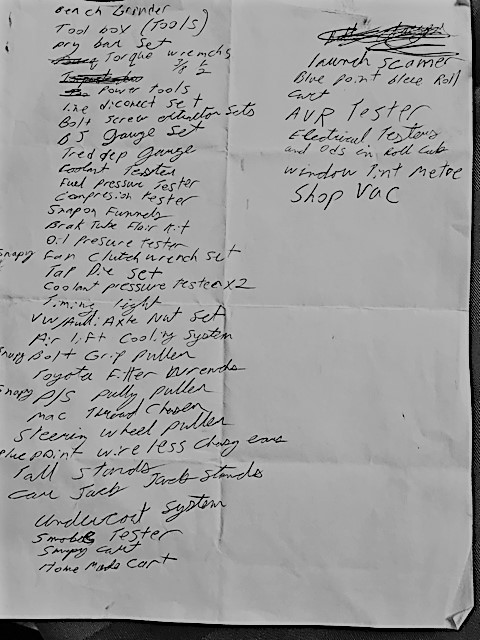 Bench Grinder
Tool box (Tools)
pry bar set
Torque wrenchs
3/8 1/2
Power Tools
Line diconect set
Bolt screw set
gauge set
Tred dep Gauge
Coolant Tester
Fuel pressure Tester
Compresion Tester
Snapon Funnels
Brak Tube Flair Kit
Oil presure Tester
Snapy Fan Clutch wrench set
Tap Die set
Coolant pressure Tester x2
Timing light
VW/Audi Axle Nut Set
Air lift Cooling System
Snapy Bolt Grip puller
Toyota Filter Wrenchs
Snapy P/S pully puller
Mac Thread Chaser
Steering wheel puller
Blue point wireless ears
Tall Stands
Car Jack Jack Stands
Undercoat System
Smoke Tester
Snapy Cart
Home Made Cart
launch scanner
Blue point blue Roll
Cart
AVR Tester
Electrical Testers
and Ods in Roll Cab
Window Tint Metre
Shop Vac